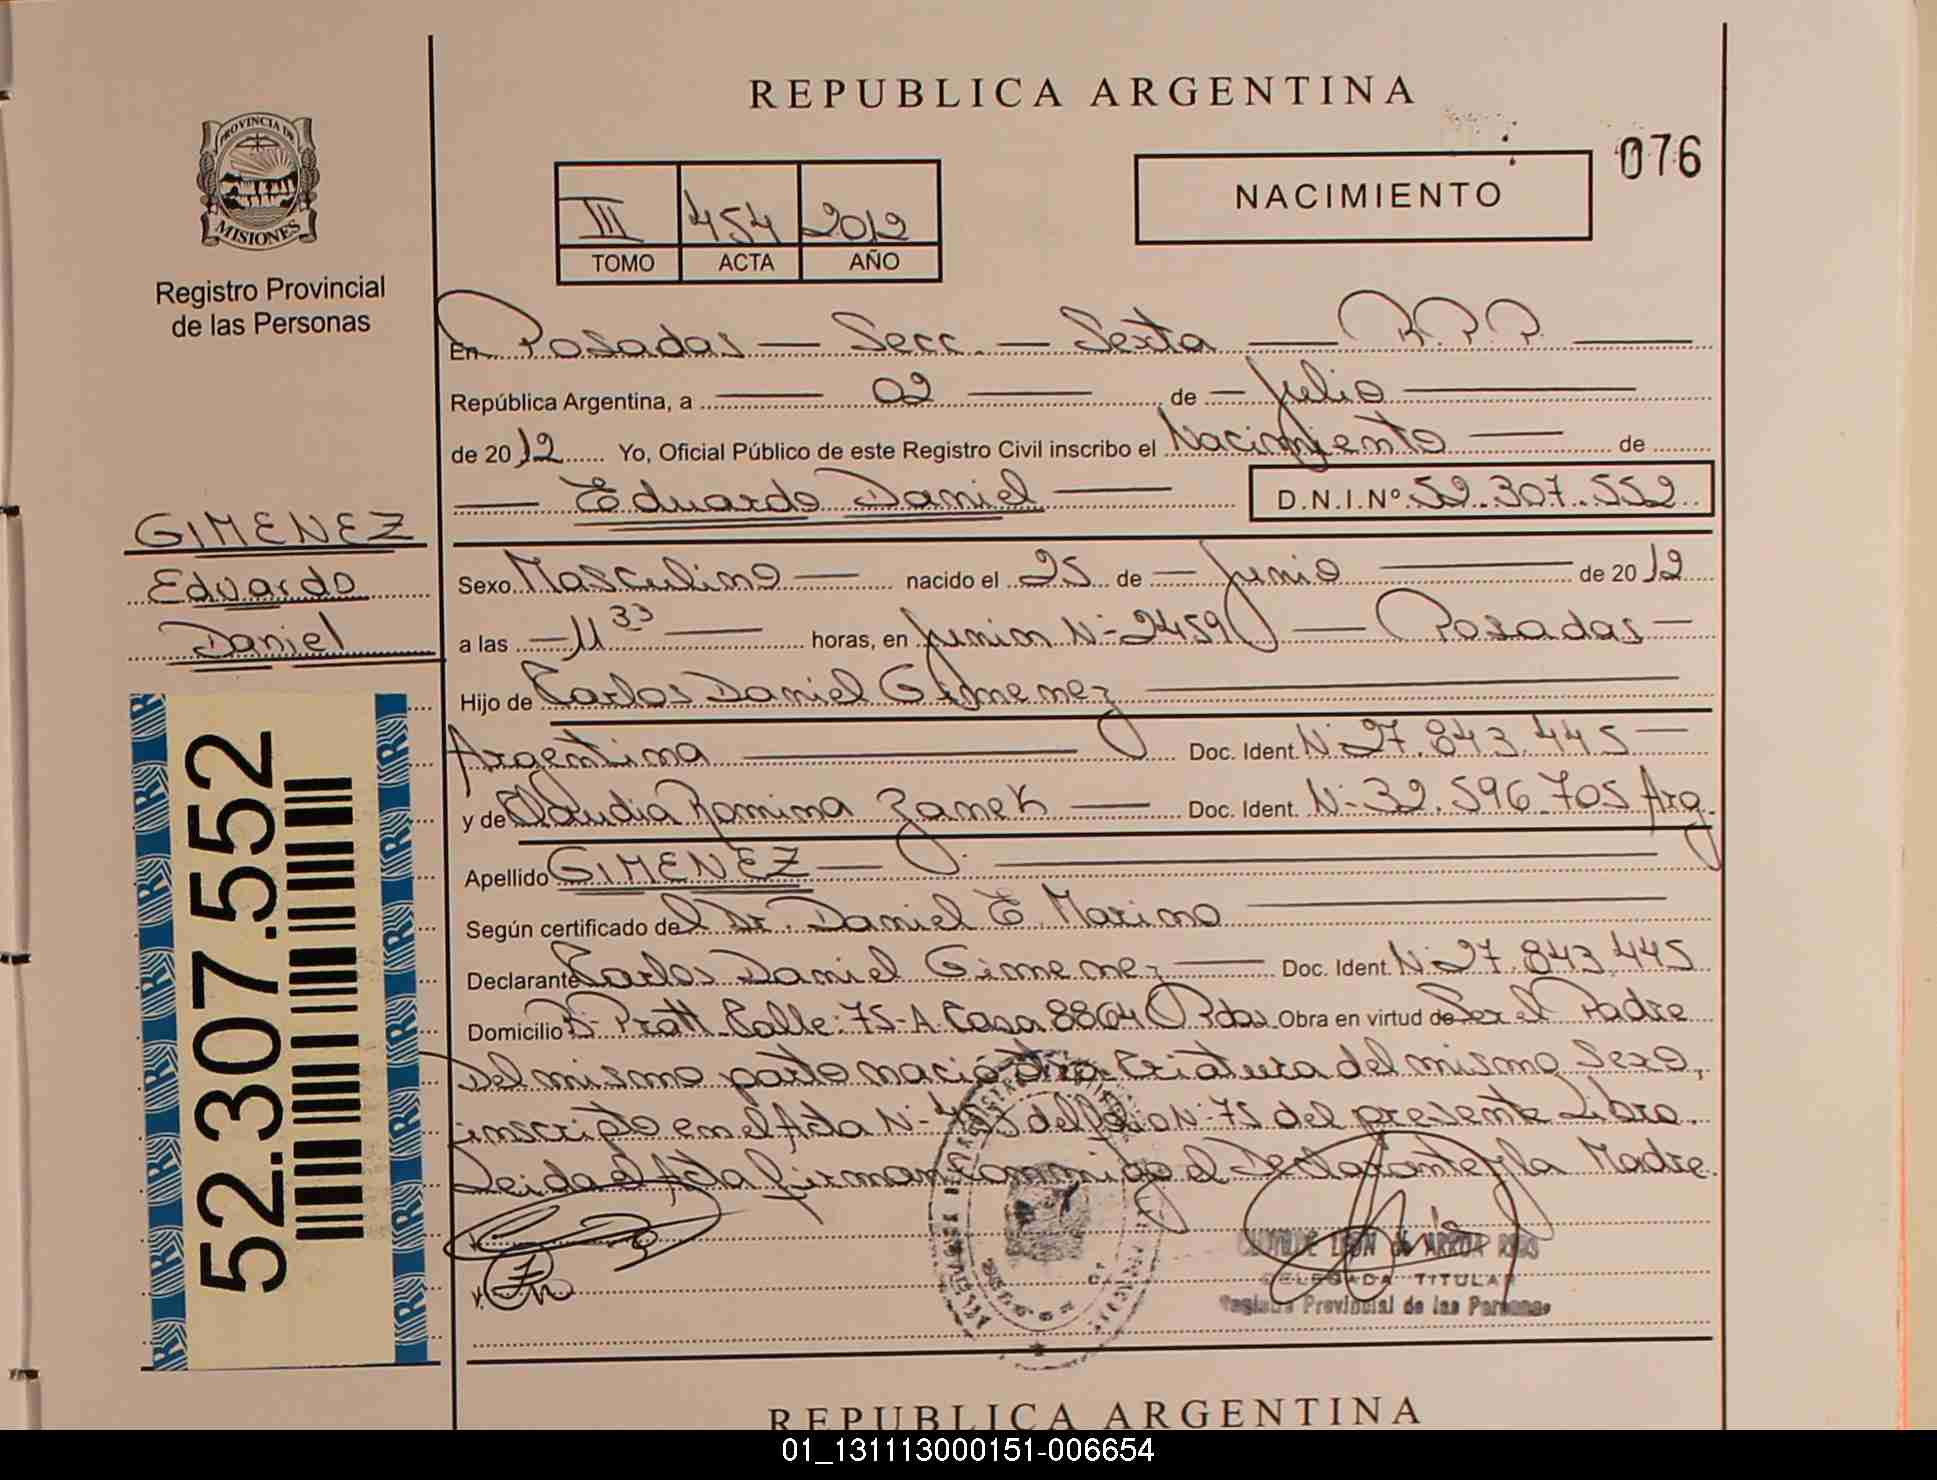 REPUBLICA ARGENTINA
076
PROVINCIA DE
MISIONES
Registro Provincial
de las Personas
III 454 2012
TOMO ACTA AÑO
NACIMIENTO
En Posadas — Secc. — Sexta — R.P.P. —
República Argentina, a — 02 — de — Julio —
de 2012 Yo, Oficial Público de este Registro Civil inscribo el Nacimiento — de
— Eduardo Daniel — D.N.I.Nº 52.307.552
GIMENEZ
Eduardo
Daniel
Sexo Masculino — nacido el 25 de — Junio — de 2012
a las — 11 33 — horas, en Junin N- 2459 — Posadas —
Hijo de Carlos Daniel Gimenez —
Argentina — Doc. Ident. N- 27.843.445 —
y de Claudia Romina Zanek — Doc. Ident. N- 32.596.705 Arg.
Apellido GIMENEZ —
Según certificado del Dr. Daniel E. Marino —
Declarante Carlos Daniel Gimenez — Doc. Ident. N- 27.843.445
Domicilio B- Pratt Calle: 75-A Casa 8864 Pdas. Obra en virtud de Ser el Padre
Del mismo parto nació Otra Criatura del mismo Sexo,
inscripto en el Acta N- 453 del folio N- 75 del presente Libro.
Leida el Acta firman conmigo el Declarante y la Madre.
DELEGADA TITULAR
Registro Provincial de las Personas
52.307.552
REPUBLICA ARGENTINA
01_131113000151-006654